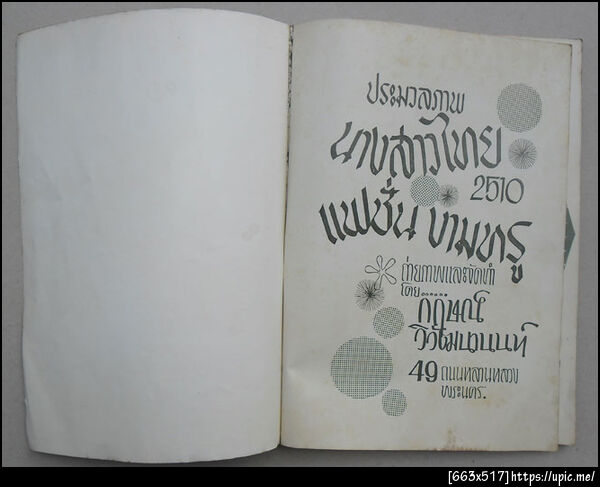 ประมวลภาพ
นางสาวไทย
2510
แฟชั่น งามหรู
ถ่ายภาพและจัดทำ
โดย
วิวัฒนานนท์
49 ถนนหลานหลวง
พระนคร.
[663x517]https://upic.me/